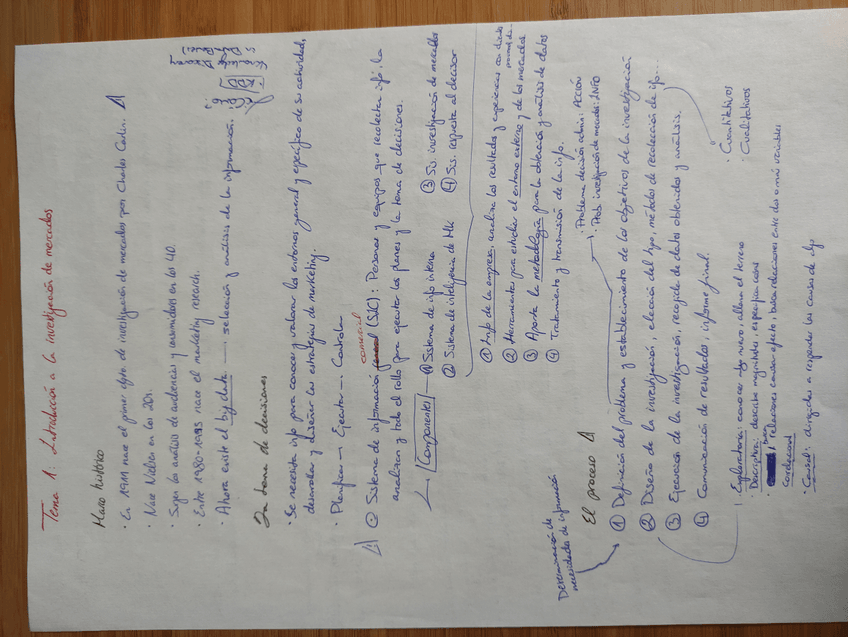 Tema 1: Introducción a la investigación de mercados
Marco histórico
· En 1911 nace el primer dpto. de investigación de mercados por Charles Coolin.
· Nace Nielsen en los 20s.
· Surge los análisis de audiencias y consumidores en los 40.
· Entre 1980-1995 nace el marketing research.
· Ahora existe el big data → selección y análisis de la información.
La toma de decisiones
· Se necesita info para conocer y valorar los entornos general y específico de su actividad,
desarrollar y diseñar las estrategias de marketing.
· Planificar → Ejecutar → Controlar
comercial
Sistema de información (SIC): Personas y equipos que recolectan info, la
analizan y todo el rollo para ejecutar los planes y la toma de decisiones.
Componentes
① Sistema de info interna
③ Sis. investigación de mercados
② Sistema de inteligencia de Mk
④ Sis. respuesta al decisor
① Info de la empresa, analiza los resultados y experiencias con dicha
② Herramientas para estudiar el entorno externo y de los mercados
③ Aporta la metodología para la obtención y análisis de datos
④ Tratamiento y transmisión de la info.
Determinación de
necesidades de información
El proceso
· Problema decisión admin: ACCIÓN
· Prob. investigación de mercados: INFO
① Definición del problema y establecimiento de los objetivos de la investigación
② Diseño de la investigación, elección del tipo, métodos de recolección de info...
③ Ejecución de la investigación, recogida de datos obtenidos y análisis.
④ Comunicación de resultados, informe final.
· Cuantitativos
· Cualitativos
· Exploratoria: conocer algo nuevo, allana el terreno
· Descriptiva: describe magnitudes, especificaciones
relaciones causa efecto, busca relaciones entre dos o más variables
correlacional
· Causal: dirigidas a responder las causas de algo